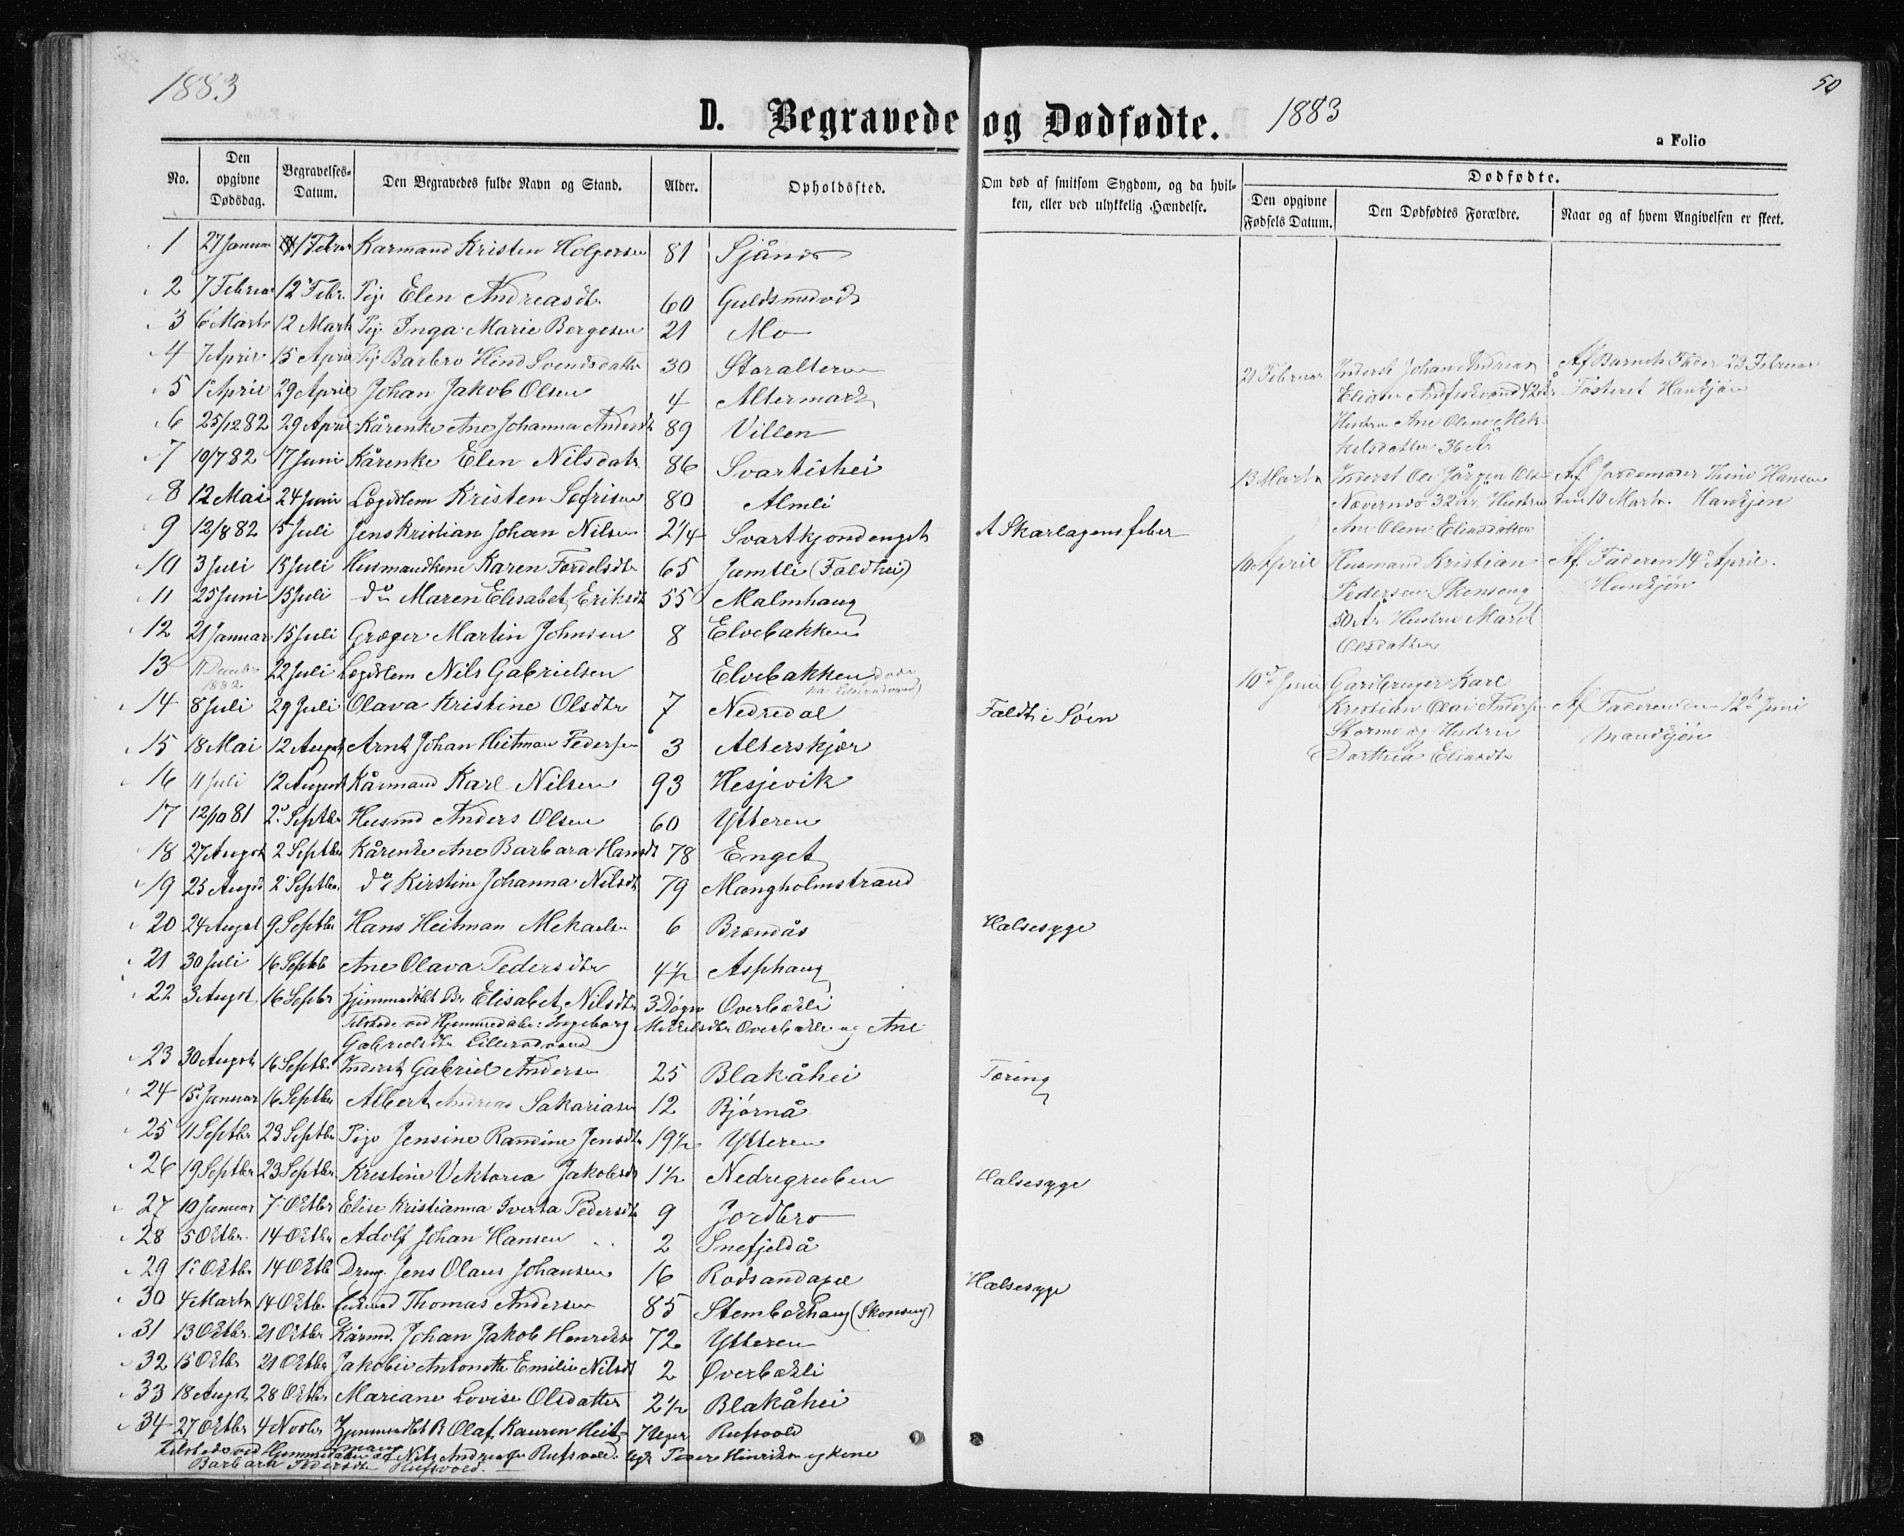 1883
50
D. Begravede og Dødfødte. 1883
a Folio
No. Den opgivne Dødsdag. Begravelses-Datum. Den Begravedes fulde Navn og Stand. Alder. Opholdssted. Om død af smitsom Sygdom, og da hvilken, eller ved ulykkelig Hændelse.
Dødfødte.
Den opgivne Fødsels Datum. Den Dødfødtes Forældre. Naar og af hvem Angivelsen er skeet.
1 27 Januar 1 Februar Karmand Kristen Holgersen 81 Sjånes
2 7 Februar 12 Febr. Pige Elen Andreasdtr 60 Guldsmedvik
3 6 Marts 12 Marts Pig Inga Marie Borgesen 21 Mo
4 7 April 15 April Pig Barbro Hind Svendsdatter 30 Storalteren
5 1 April 29 April Johan Jakob Olsen 4 Altermark
6 25/12 82 29 April Kårenke Ane Johanna Andersdtr 89 Villen
7 19/7 82 17 Juni Kårenke Elen Nilsdatr 86 Svartishei
8 12 Mai 24 Juni Lægdslem Kristen Sofrisen 80 Almli
9 12/8 82 15 Juli Jens Kristian Johan Nilsen 2 1/4 Svartkjondenget A Skarlagensfeber
10 3 Juli 15 Juli Husmandkone Karen Tordelsdtr 65 Jamtli (Faldhei)
11 25 Juni 15 Juli do Maren Elisabet Eriksdtr 55 Malmhaug
12 21 Januar 15 Juli Græger Martin Johnsen 8 Elvebakken
13 11 December 1882 22 Juli Lægdslem Nils Gabrielsen Elvebakken
14 8 Juli 29 Juli Olava Kristine Olsdtr 7 Nedredal Faldt i Søen
15 18 Mai 12 August Arnt Johan Heitman Pedersen 3 Alterskjær
16 11 Juli 12 August Kårmand Karl Nilsen 93 Hesjevik
17 12/10 81 2 Septbr Husmd Anders Olsen 60 Ytteren
18 27 August 2 Septbr Kårenke Ane Barbara Hansdtr 78 Enget
19 23 August 2 Septbr do Kirstine Johanna Nilsdtr 79 Mangholmstrand
20 24 August 9 Septbr Hans Heitman Mekaels 6 Brendås Halsesyge
21 30 Juli 16 Septbr Ane Olava Pedersdtr 4 1/2 Asphaug
22 3 August 16 Septbr Hjemmedøbt Br Elisabet Nilsdtr 3 Døgn Overbekli
Tilstede ved Hjemmedåben: Ingeborg Mikkelsdtr Overbekli og Ane
Gabrielsdtr
23 30 August 16 Septbr Inderst Gabriel Andersen 25 Blakåhei Tæring
24 15 Januar 16 Septbr Albert Andreas Sakariasen 12 Bjørnå
25 11 Septbr 23 Septbr Pige Jensine Randine Jensdtr 19 1/2 Ytteren
26 19 Septbr 23 Septbr Kristine Viktoria Jakobsdtr 1 1/2 Nedregruben Halsesyge
27 10 Januar 7 Oktbr Elise Kristianna Iverta Pedersdtr 9 Jordbro
28 5 Oktbr. 14 Oktbr Adolf Johan Hansen 2 Snefjeldå
29 1 Oktbr 14 Oktb Dreng Jens Olaus Johansen 16 Rødsandapel Halsesyge
30 4 Marts 14 Oktbr Thomas Andersen 85 Stembekhaug (Skonseng)
31 13 Oktbr 21 Oktbr Kårmd. Johan Jakob Henriksen 72 Ytteren
32 15 Oktbr 21 Oktbr Jakobie Antonette Emilie Nilsdt 2 Øverbekli
33 18 August 28 Oktbr Mariane Lovise Olsdatter 2 1/2 Blakåhei
34 27 Oktbr 4 Novbr Hjemmedøbt B Olaf Kauren Heitmann 7 Uger Rufsvold
Tilstede ved Hjemmedåben af Nils Andreas Rufsvold Peder Hinriksen og kone
Barbara Pedersdtr Rufsvold.
21 Februar Inderst Johan Andreas Af Barnets Fader 23 Februar
42 År Fosteret Hankjøn
Hustru Ane Olene Mikkelsdatter 36 År
13 Marts Inderst Ole Jørgen Olsen Af Jordemoder Trine Hansen
Nævernes 32 År Hustru den 18 Marts. Hankjøn
Ane Olene Eliasdatter
10 April Husmand Kristian Af Faderen 14 April.
Pedersen Skonseng Hunkjøn
50 År Hustru Maret
Olsdatter
10d Juni Gardbruger Karl
Kristian Olai Andersen Af Faderen den 12te Juni
Stormo og Hustru Mandkjøn
Dorthea Eliasdtr